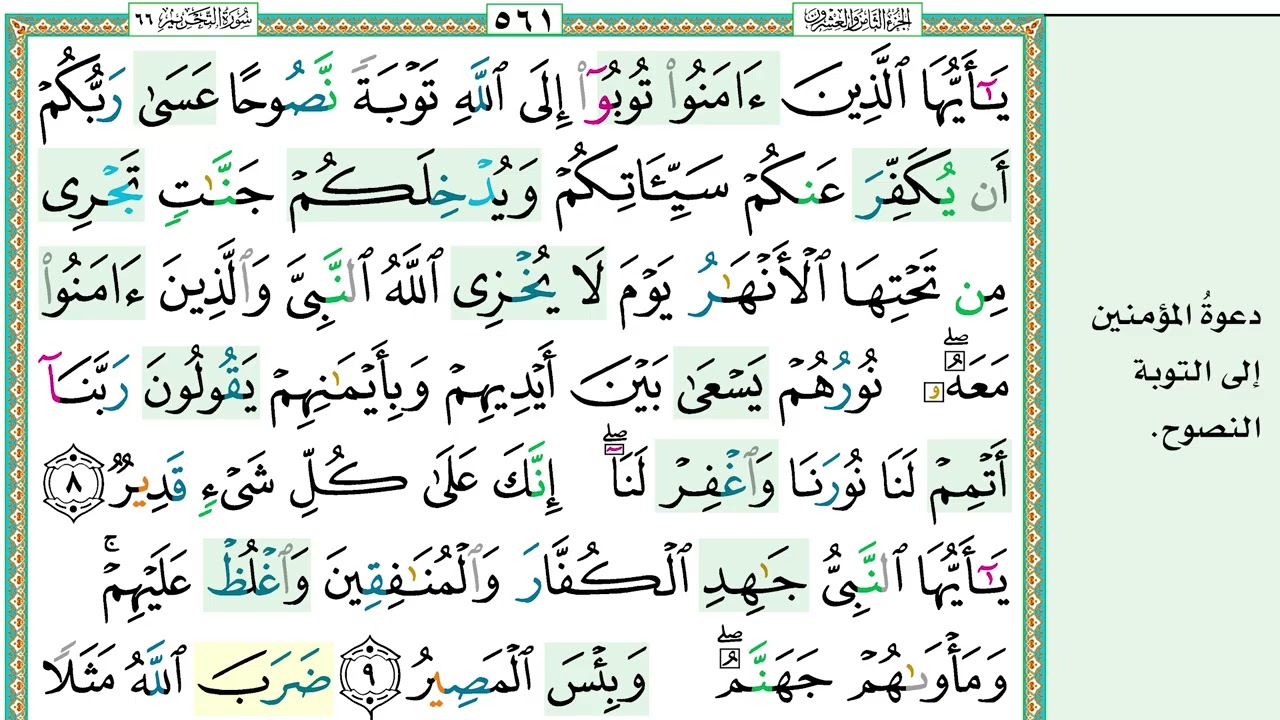 الجزء الثامن والعشرون ٥٦١ سورة التحريم ٦٦
يَٰٓأَيُّهَا ٱلَّذِينَ ءَامَنُوا۟ تُوبُوٓا۟ إِلَى ٱللَّهِ تَوْبَةً نَّصُوحًا عَسَىٰ رَبُّكُمْ
أَن يُكَفِّرَ عَنكُمْ سَيِّـَٔاتِكُمْ وَيُدْخِلَكُمْ جَنَّٰتٍ تَجْرِى
مِن تَحْتِهَا ٱلْأَنْهَٰرُ يَوْمَ لَا يُخْزِى ٱللَّهُ ٱلنَّبِىَّ وَٱلَّذِينَ ءَامَنُوا۟
مَعَهُۥ ۖ نُورُهُمْ يَسْعَىٰ بَيْنَ أَيْدِيهِمْ وَبِأَيْمَٰنِهِمْ يَقُولُونَ رَبَّنَآ
أَتْمِمْ لَنَا نُورَنَا وَٱغْفِرْ لَنَآ ۖ إِنَّكَ عَلَىٰ كُلِّ شَىْءٍ قَدِيرٌ ٨
يَٰٓأَيُّهَا ٱلنَّبِىُّ جَٰهِدِ ٱلْكُفَّارَ وَٱلْمُنَٰفِقِينَ وَٱغْلُظْ عَلَيْهِمْ ۚ
وَمَأْوَىٰهُمْ جَهَنَّمُ ۖ وَبِئْسَ ٱلْمَصِيرُ ٩ ضَرَبَ ٱللَّهُ مَثَلًا
دعوةُ المؤمنين
إلى التوبة
النصوح.